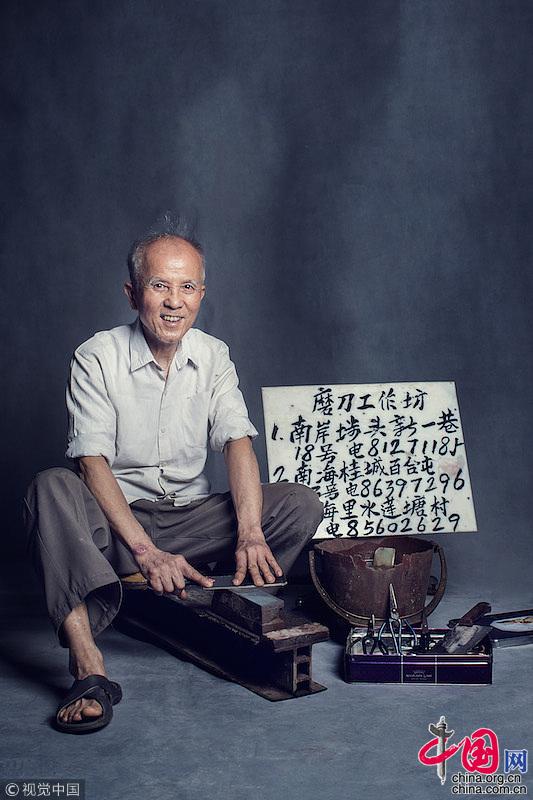 磨刀工作坊
1. 南岸塘头新一巷
18号电81271185
2. 南海桂城百合屯
3号电86397296
海里水莲塘村
电85602629
©视觉中国
中国网
china.org.cn
china.com.cn